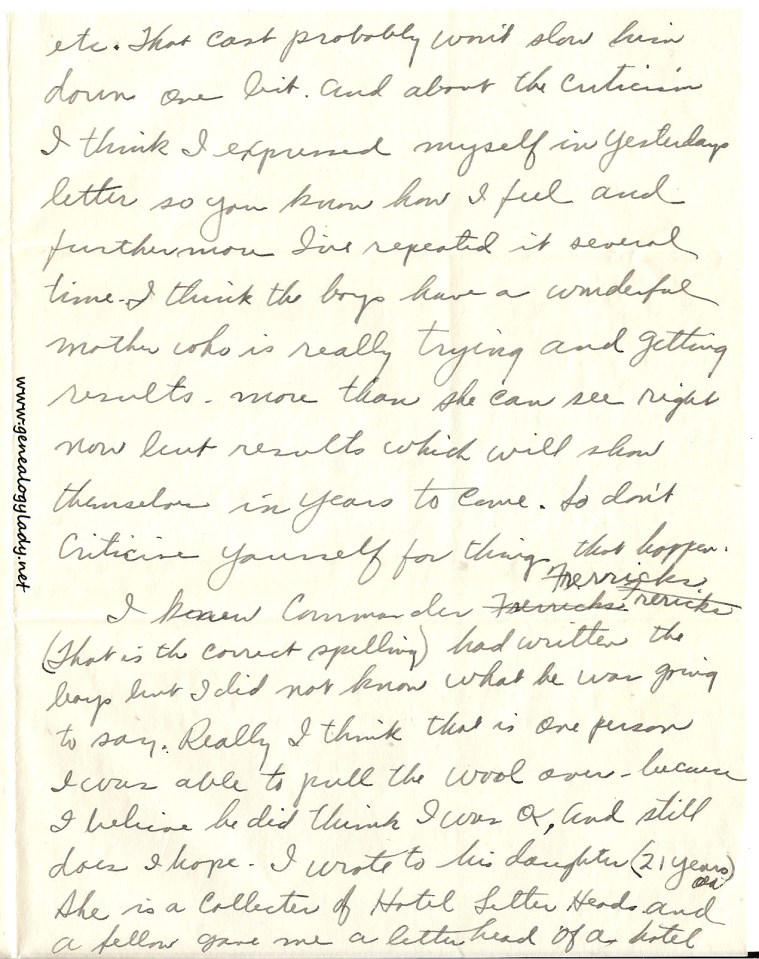 etc. That cast probably won't slow him
down one bit. And about the criticism
I think I expressed myself in yesterdays
letter so you know how I feel and
furthermore I've repeated it several
time. I think the boys have a wonderful
mother who is really trying and getting
results - more than she can see right
now but results which will show
themselves in years to come. So don't
Criticise yourself for things that happen.
Frerricks
I knew Commander Frerricks Frericks
(That is the correct spelling) had written the
boys but I did not know what he was going
to say. Really I think that is one person
I was able to pull the wool over - because
I believe he did think I was OK, and still
does I hope - I wrote to his daughter (21 years)
old
She is a Collecter of Hotel Letter Heads and
a fellow gave me a letterhead of a hotel
www.genealogylady.net